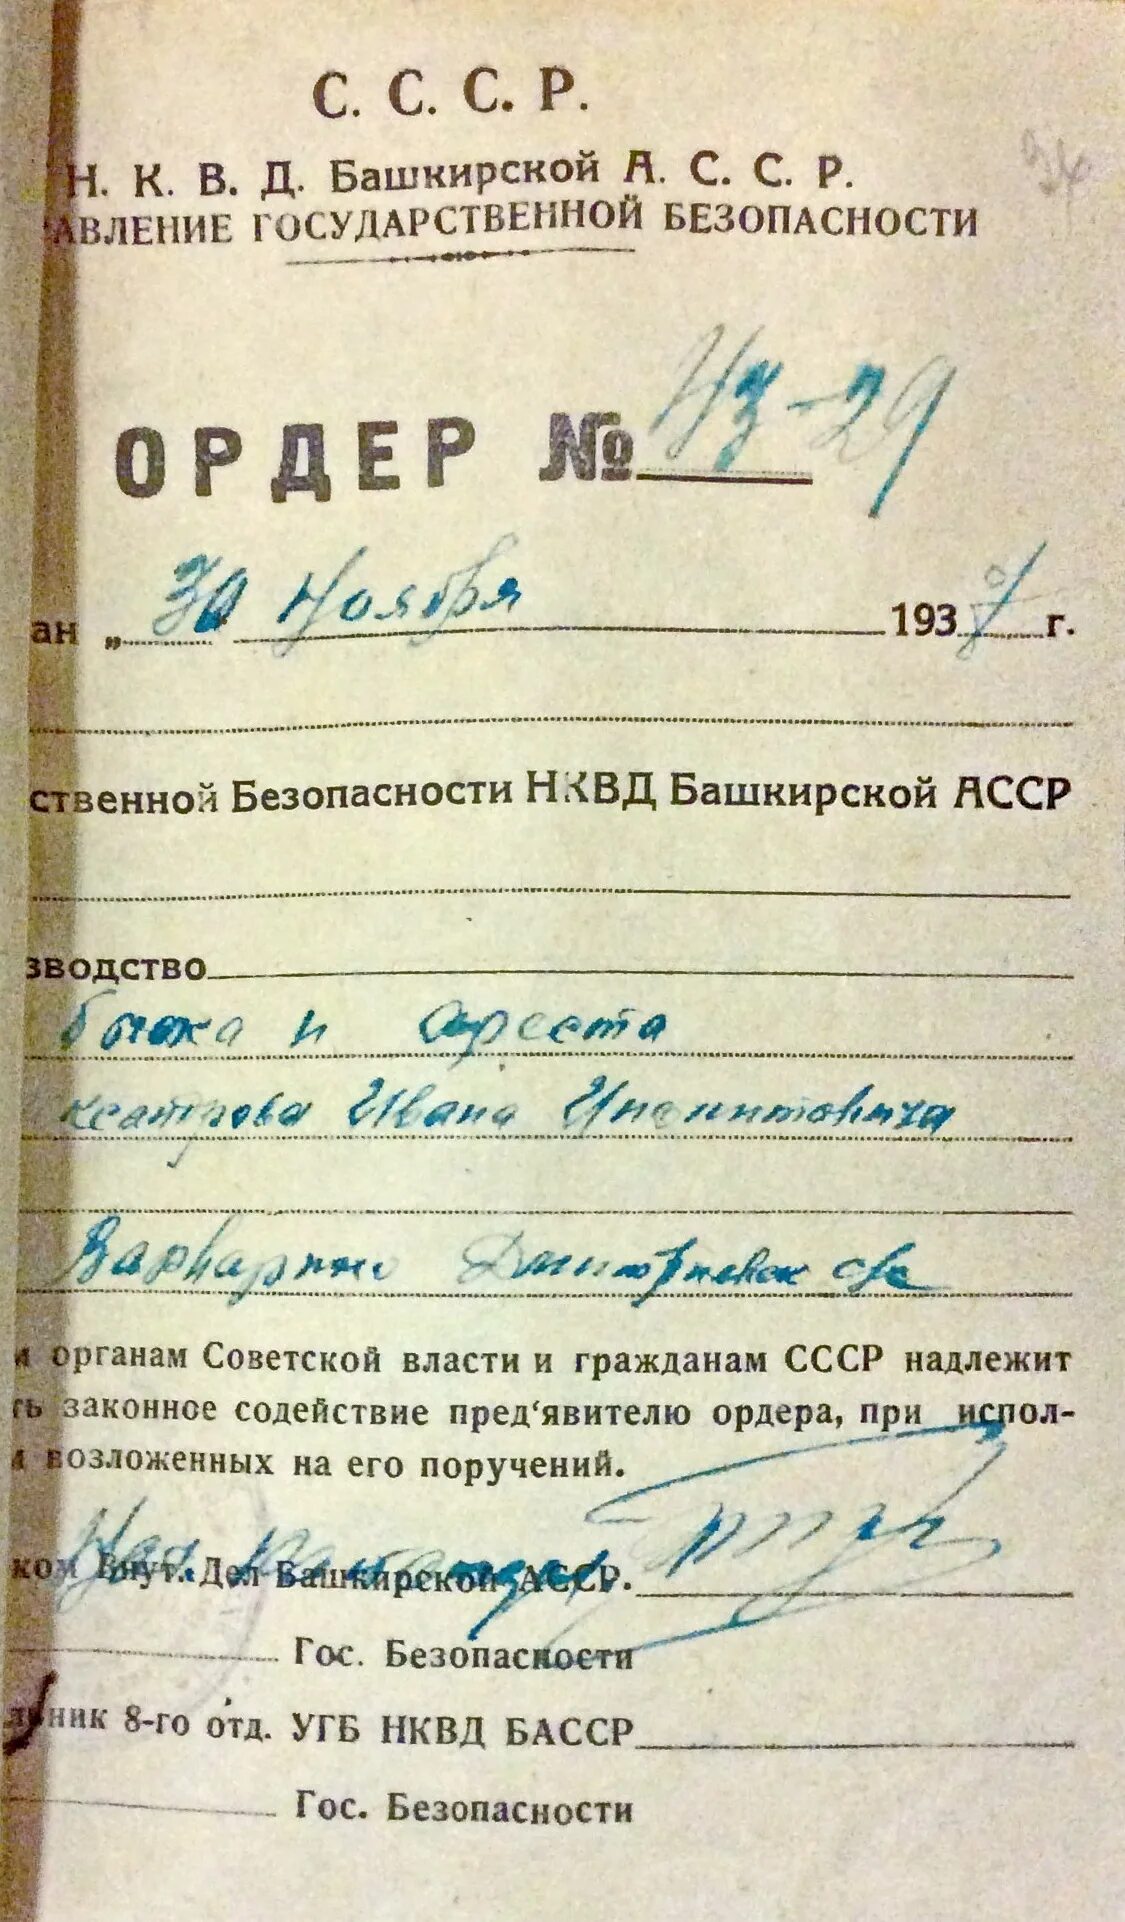 С. С. С. Р.
Н. К. В. Д. Башкирской А. С. С. Р.
АВЛЕНИЕ ГОСУДАРСТВЕННОЙ БЕЗОПАСНОСТИ
ОРДЕР № 43-29
ан „ 30 Ноября 1937 г.
ственной Безопасности НКВД Башкирской АССР
зводство
и ареста
Ивана
органам Советской власти и гражданам СССР надлежит
ть законное содействие пред'явителю ордера, при испол-
и возложенных на его поручений.
ком Внут. Дел Башкирской АССР.
Гос. Безопасности
льник 8-го отд. УГБ НКВД БАССР
Гос. Безопасности